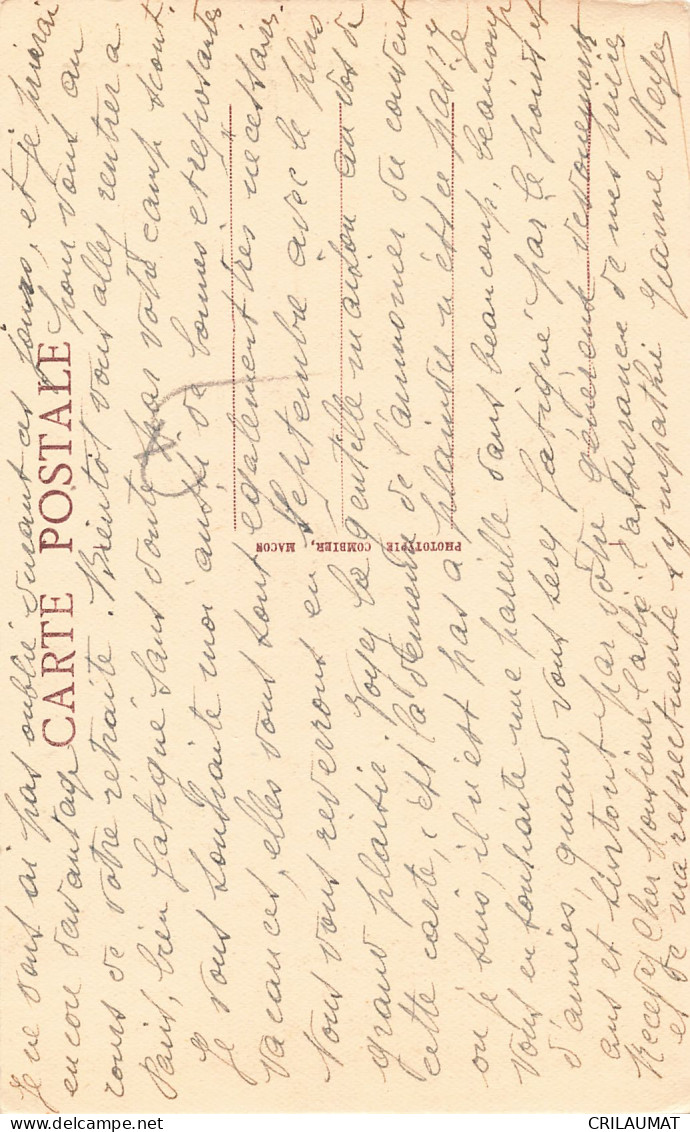 Je ne vous ai pas oublié durant ces jours, et je prierai
encore davantage pour vous au
cours de votre retraite. Bientôt vous allez rentrer à
Paris, bien fatigué sans doute par votre camp scout.
Je vous souhaite moi aussi de bonnes et reposantes
vacances, elles vous sont également très nécessaires.
Nous vous reverrons en Septembre avec le plus
grand plaisir. Voyez la gentille maison au dos de
cette carte, c'est la demeure de l'aumônier du couvent
où je suis, il n'est pas à plaindre n'est ce pas? Je
vous en souhaite une pareille dans beaucoup, beaucoup
d'années, quand vous serez fatigué par le poids et
ans et surtout par votre généreux dévouement
Recevez Cher Monsieur l'abbé l'assurance de mes prières
et de ma respectueuse sympathie Jeanne
CARTE POSTALE
PHOTOTYPIE COMBIER, MACON
CRILAUMAT